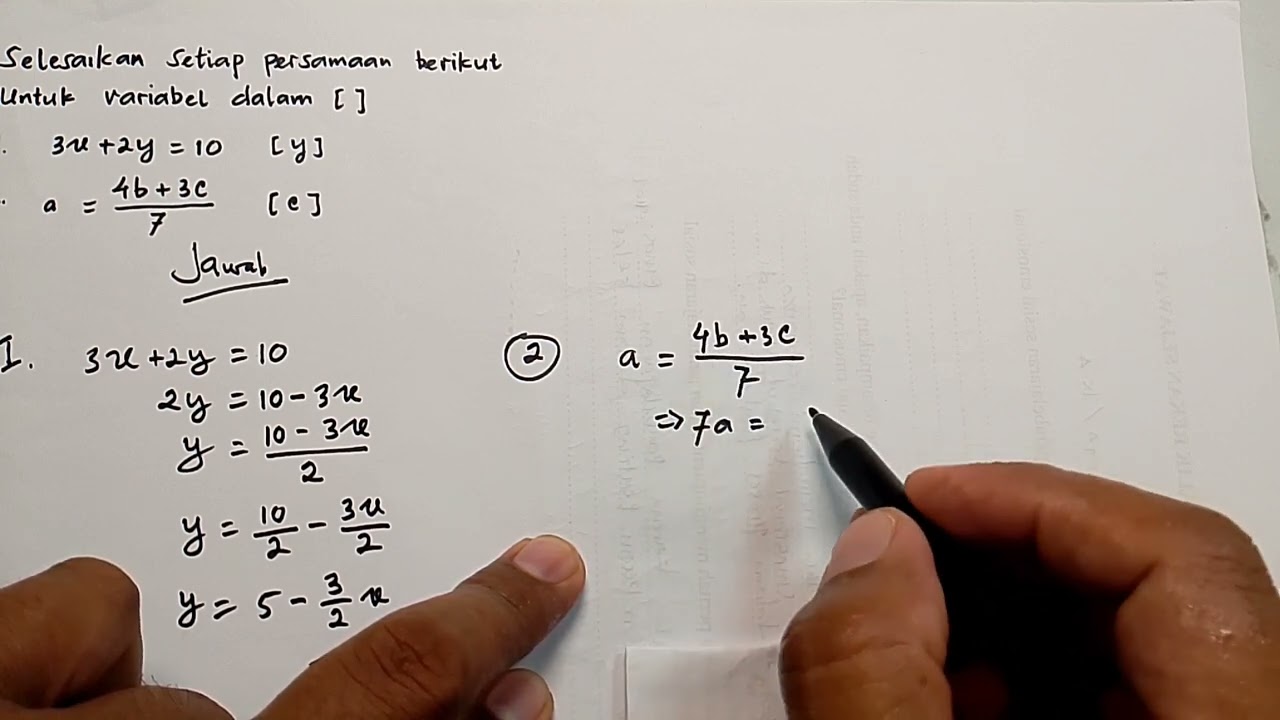 Selesaikan setiap persamaan berikut
Untuk variabel dalam [ ]
. 3x + 2y = 10 [y]
. a = (4b + 3c)/7 [c]
Jawab
I. 3x + 2y = 10
2y = 10 - 3x
y = (10 - 3x)/2
y = 10/2 - 3x/2
y = 5 - 3/2 x
② a = (4b + 3c)/7
⇒ 7a =